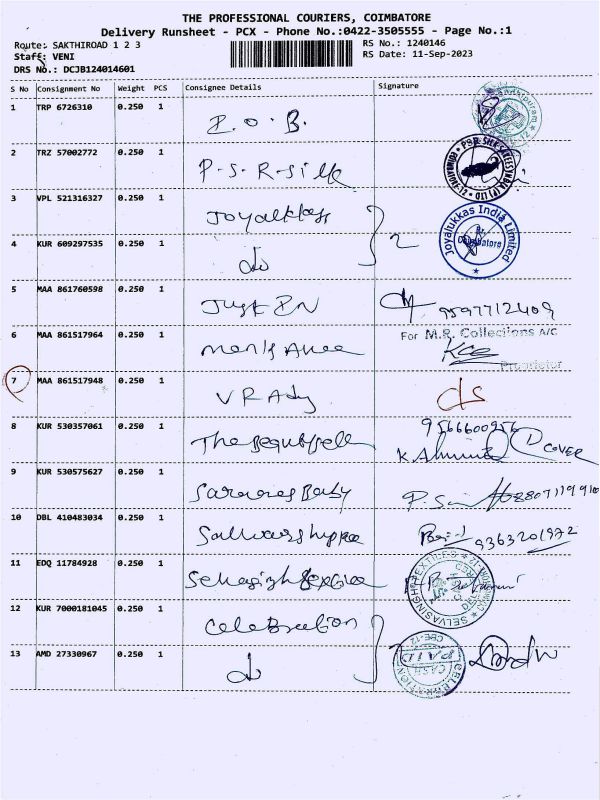 THE PROFESSIONAL COURIERS, COIMBATORE
Delivery Runsheet - PCX - Phone No.:0422-3505555 - Page No.:1
Route: SAKTHIROAD 1 2 3
RS No.: 1240146
Staff: VENI
RS Date: 11-Sep-2023
DRS No.: DCJB124014601
S No Consignment No Weight PCS Consignee Details Signature
1 TRP 6726310 0.250 1 I.O.B.
2 TRZ 57002772 0.250 1 P-S-R-Silk
3 VPL 521316327 0.250 1 Joyalukkas
2
Joyalukkas India Limited
Coimbatore
4 KUR 609297535 0.250 1 do
5 MAA 861760598 0.250 1 Just IN 9597712409
6 MAA 861517964 0.250 1
For M.R. Collections A/C
Proprietor
7 MAA 861517948 0.250 1 V R Ady ds
8 KUR 530357061 0.250 1 9566600956
COVER
9 KUR 530575627 0.250 1 Baby
10 DBL 410483034 0.250 1 9363201972
11 EDQ 11784928 0.250 1
SELVASINGH TEXTILES
12 KUR 7000181045 0.250 1 Celebration
13 AMD 27330967 0.250 1 do
CELEBRATION
CBE-12
CASH
PAID